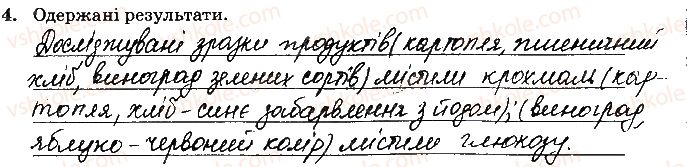 4. Одержані результати.
Досліджувані зразки продуктів (картопля, пшеничний
хліб, виноград зелених сортів) містили крохмаль (кар-
топля, хліб - синє забарвлення з йодом); (виноград,
яблуко - червоний колір) містили глюкозу.